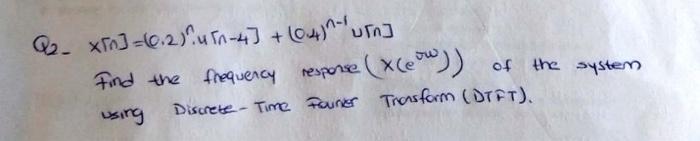 Q2- x[n]=(0.2)ⁿ.u[n-4] + (0.4)ⁿ⁻¹u[n]
Find the frequency response (X(e^jw)) of the system
using Discrete-Time Fourier Transform (DTFT).